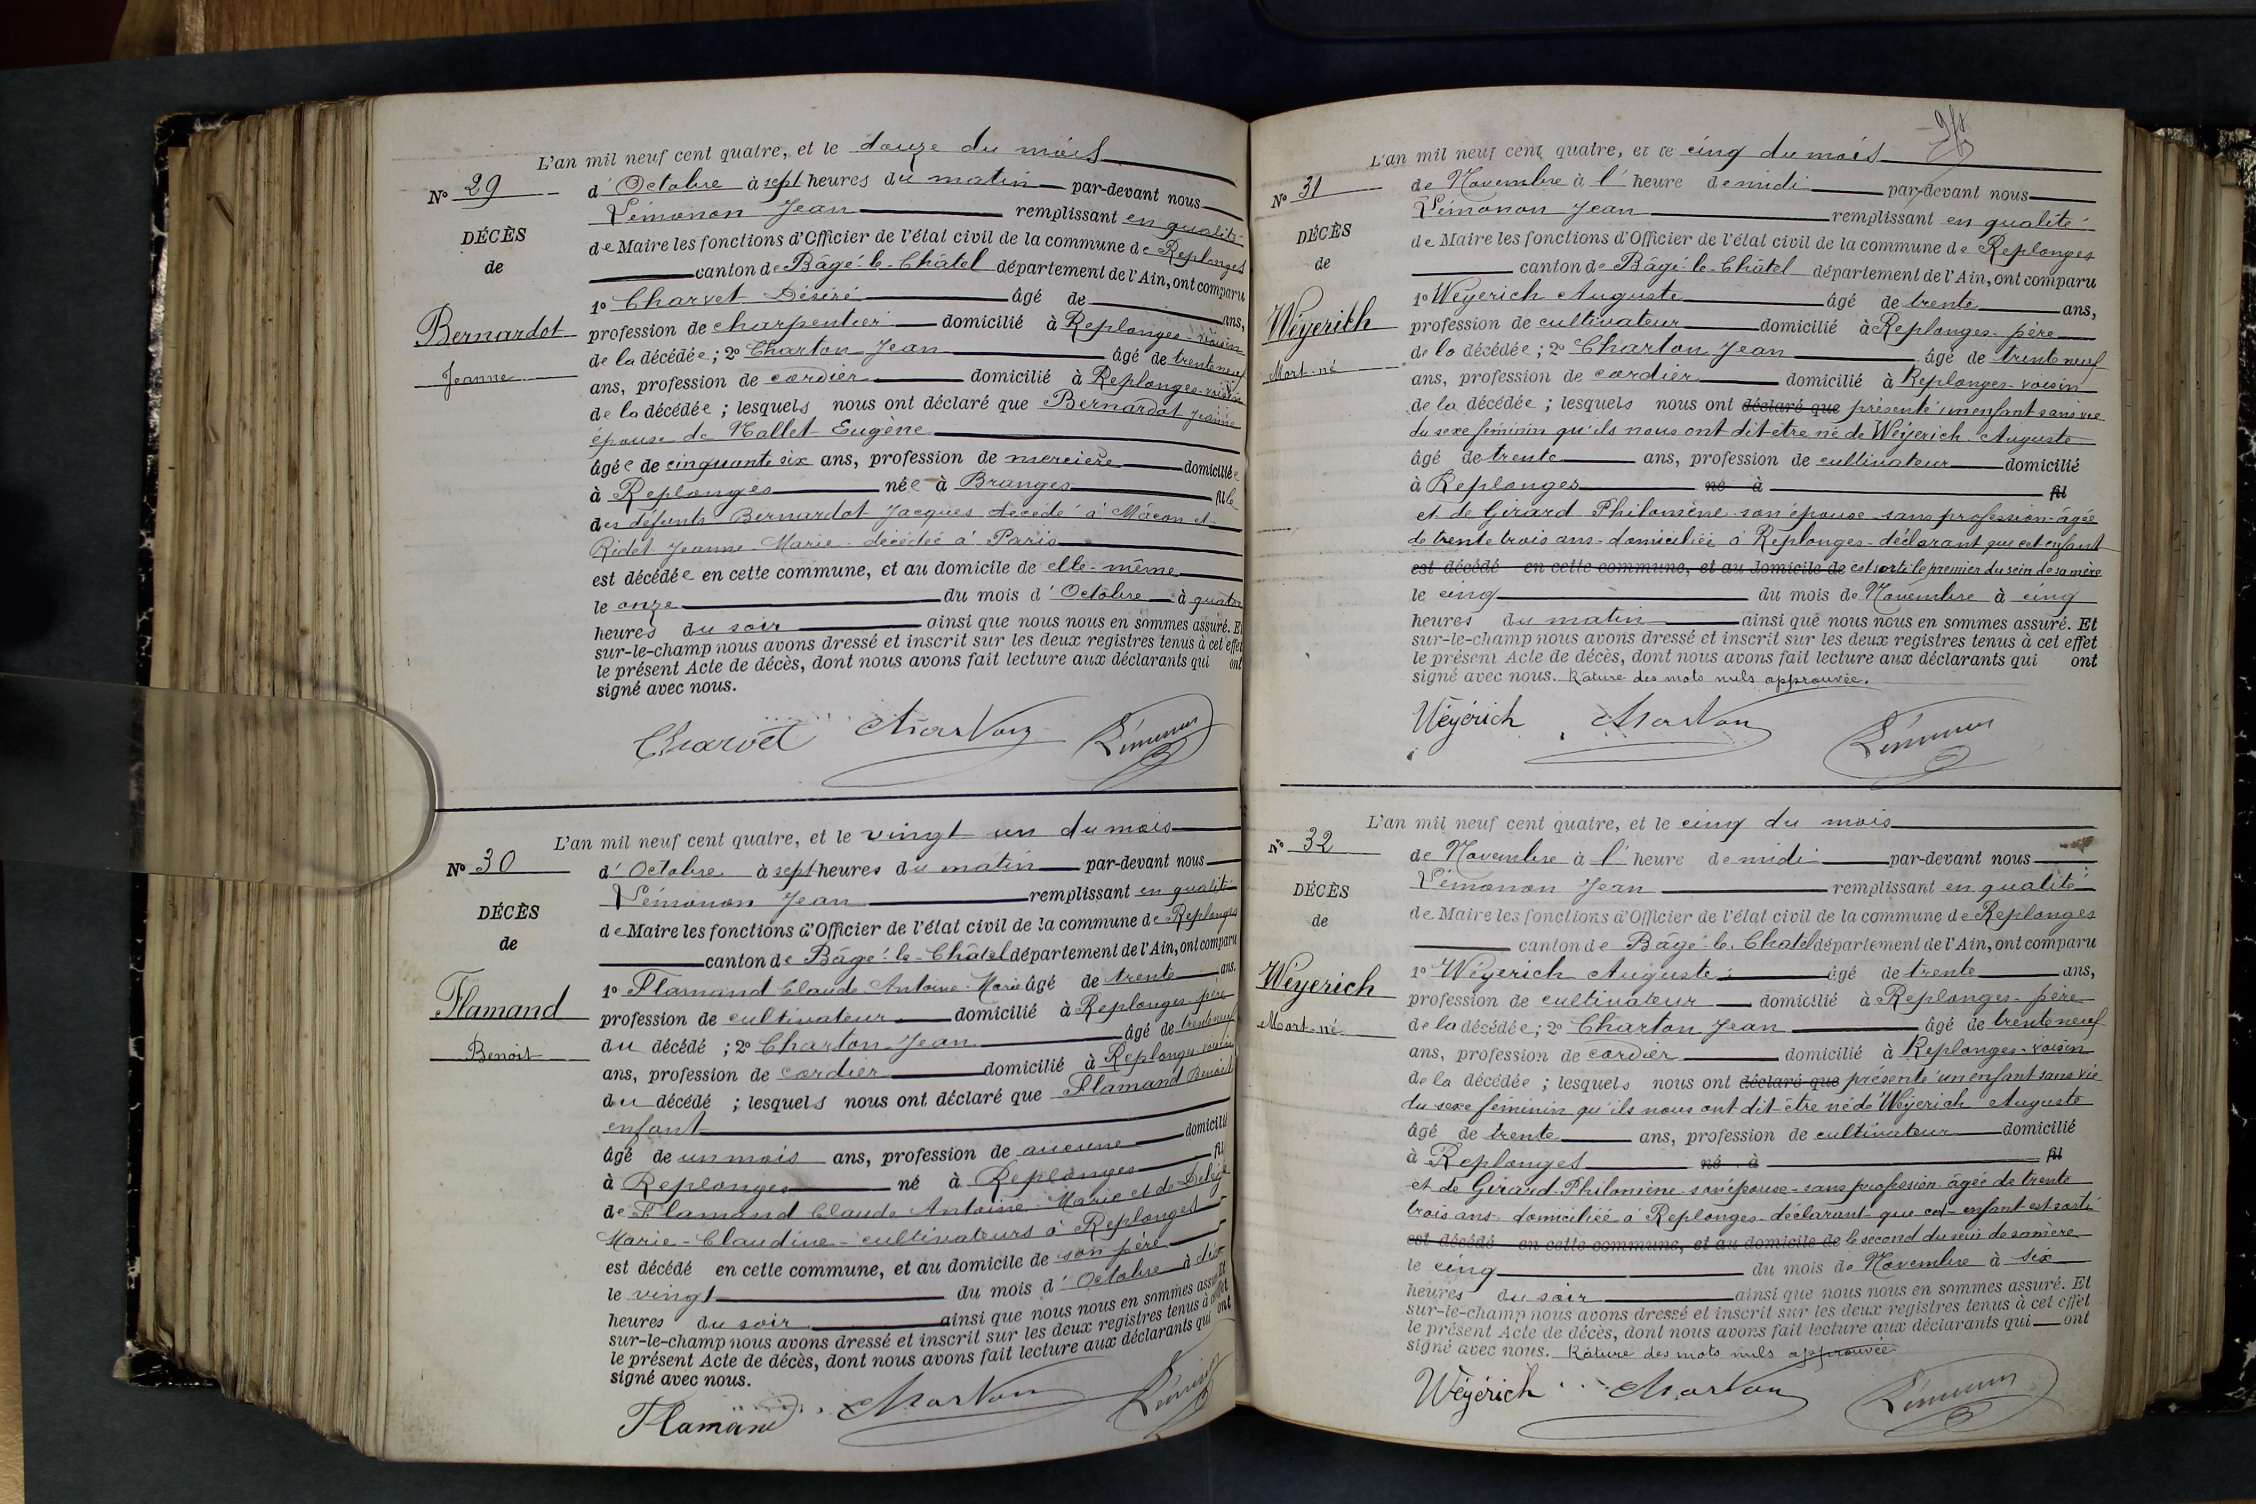 L'an mil neuf cent quatre, et le douze du mois
No 29
d'Octobre à sept heures du matin par-devant nous
Lémonon Jean remplissant en qualité
DÉCÈS
de Maire les fonctions d'Officier de l'état civil de la commune de Replonges
de
canton de Bâgé-le-Châtel département de l'Ain, ont comparu
1o Charvet Désiré âgé de ans,
Bernardot
profession de charpentier domicilié à Replonges-voisin
de la décédée; 2o Charton Jean âgé de trente neuf
Jeanne
ans, profession de cordier domicilié à Replonges-voisin
de la décédée; lesquels nous ont déclaré que Bernardot Jeanne
épouse de Mallet Eugène
âgée de cinquante six ans, profession de mercière domiciliée
à Replonges née à Branges fille
des défunts Bernardot Jacques décédé à Mâcon et
Ridet Jeanne-Marie décédée à Paris
est décédée en cette commune, et au domicile de elle-même
le onze du mois d'Octobre à quatre
heures du soir ainsi que nous nous en sommes assuré. Et
sur-le-champ nous avons dressé et inscrit sur les deux registres tenus à cet effet
le présent Acte de décès, dont nous avons fait lecture aux déclarants qui ont
signé avec nous.
Charvet Charton Lémonon
L'an mil neuf cent quatre, et le vingt un du mois
No 30
d'Octobre à sept heures du matin par-devant nous
Lémonon Jean remplissant en qualité
DÉCÈS
de Maire les fonctions d'Officier de l'état civil de la commune de Replonges
de
canton de Bâgé-le-Châtel département de l'Ain, ont comparu
1o Flamand Claude Antoine Marie âgé de trente ans.
Flamand
profession de cultivateur domicilié à Replonges-père
du décédé; 2o Charton Jean âgé de trente neuf
Benoit
ans, profession de cordier domicilié à Replonges voisin
du décédé; lesquels nous ont déclaré que Flamand Benoit
enfant
âgé de un mois ans, profession de aucune domicilié
à Replonges né à Replonges fil
de Flamand Claude Antoine Marie et de
Marie-Claudine-cultivateurs à Replonges
est décédé en cette commune, et au domicile de son père
le vingt du mois d'Octobre à dix
heures du soir ainsi que nous nous en sommes assuré. Et
sur-le-champ nous avons dressé et inscrit sur les deux registres tenus à cet effet
le présent Acte de décès, dont nous avons fait lecture aux déclarants qui ont
signé avec nous.
Flamand Charton Lémonon
L'an mil neuf cent quatre, et le cinq du mois
No 31
de Novembre à l'heure de midi par-devant nous
Lémonon Jean remplissant en qualité
DÉCÈS
de Maire les fonctions d'Officier de l'état civil de la commune de Replonges
de
canton de Bâgé-le-Châtel département de l'Ain, ont comparu
1o Wéyerich Auguste âgé de trente ans,
Wéyerich
profession de cultivateur domicilié à Replonges-père
de la décédée; 2o Charton Jean âgé de trente neuf
Mort-né
ans, profession de cordier domicilié à Replonges-voisin
de la décédée; lesquels nous ont déclaré que présenté un enfant sans vie
du sexe féminin qu'ils nous ont dit être né de Wéyerich Auguste
âgé de trente ans, profession de cultivateur domicilié
à Replonges né à fil
et de Girard Philomène son épouse-sans profession-âgée
de trente trois ans-domiciliée à Replonges-déclarant que cet enfant
est décédé en cette commune, et au domicile de est sorti le premier du sein de sa mère
le cinq du mois de Novembre à cinq
heures du matin ainsi que nous nous en sommes assuré. Et
sur-le-champ nous avons dressé et inscrit sur les deux registres tenus à cet effet
le présent Acte de décès, dont nous avons fait lecture aux déclarants qui ont
signé avec nous. Rature des mots nuls approuvée.
Wéyérich Charton Lémonon
L'an mil neuf cent quatre, et le cinq du mois
No 32
de Novembre à l'heure de midi par-devant nous
Lémonon Jean remplissant en qualité
DÉCÈS
de Maire les fonctions d'Officier de l'état civil de la commune de Replonges
de
canton de Bâgé-le-Chatel département de l'Ain, ont comparu
1o Wéyerich Auguste âgé de trente ans,
Wéyerich
profession de cultivateur domicilié à Replonges-père
Mort-né
de la décédée; 2o Charton Jean âgé de trente neuf
ans, profession de cordier domicilié à Replonges-voisin
de la décédée; lesquels nous ont déclaré que présenté un enfant sans vie
du sexe féminin qu'ils nous ont dit être né de Wéyerich Auguste
âgé de trente ans, profession de cultivateur domicilié
à Replonges né à fil
et de Girard Philomène-son épouse-sans profession-âgée de trente
trois ans-domiciliée à Replonges-déclarant que cet enfant est sorti
est décédé en cette commune, et au domicile de le second du sein de sa mère
le cinq du mois de Novembre à six
heures du soir ainsi que nous nous en sommes assuré. Et
sur-le-champ nous avons dressé et inscrit sur les deux registres tenus à cet effet
le présent Acte de décès, dont nous avons fait lecture aux déclarants qui ont
signé avec nous. Rature des mots nuls approuvée
Wéyérich Charton Lémonon